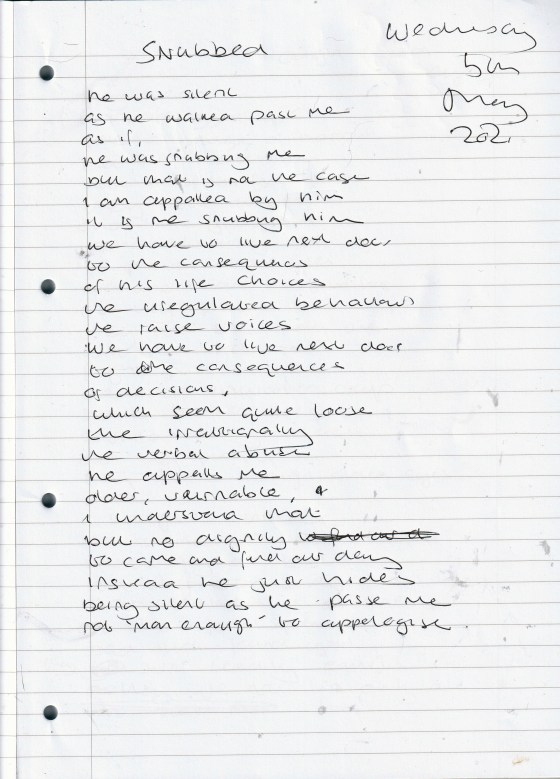 Snubbed
Wednesday
5th
May
2021
he was silent
as he walked past me
as if,
he was snubbing me
but that is not the case
I am appalled by him
it is me snubbing him
we have to live next door
to the consequences
of his life choices
the unregulated behaviours
the raise voices
we have to live next door
to the consequences
of decisions,
which seem quite loose
the irrationality
the verbal abuse
he appalls me
older, vulnerable, &
I understand that
but no dignity
to came and find out
instead he just hides
being silent as he passe me
not "man enough" to appologise